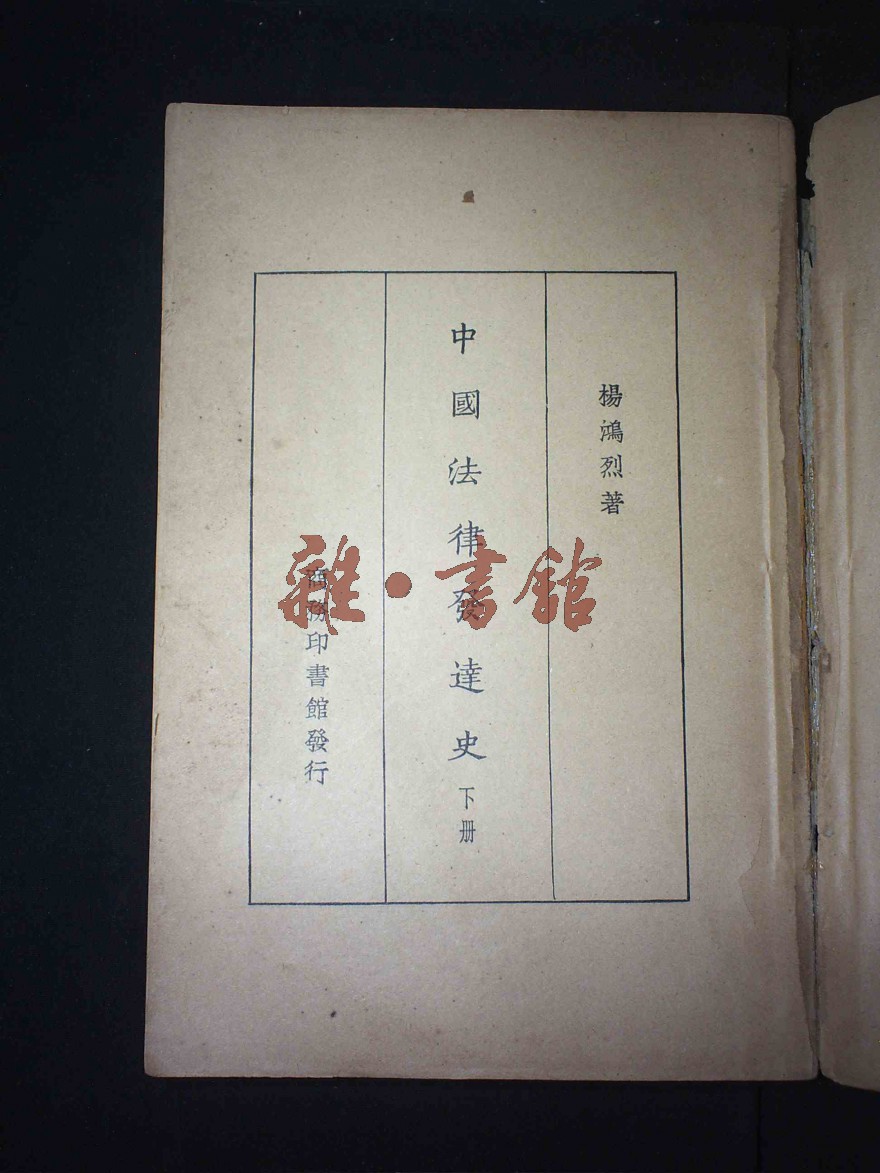 楊鴻烈著
中國法律發達史下册
商務印書館發行
雜·書館